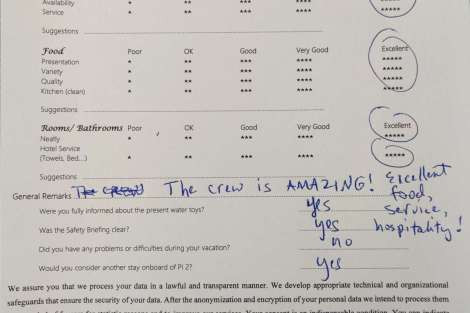 Availability * ** *** **** *****
Service * ** *** **** *****
Suggestions
Food Poor OK Good Very Good Excellent
Presentation * ** *** **** *****
Variety * ** *** **** *****
Quality * ** *** **** *****
Kitchen (clean) * ** *** **** *****
Suggestions
Rooms/ Bathrooms Poor OK Good Very Good Excellent
Neatly * ** *** **** *****
Hotel Service
(Towels, Bed...) * ** *** **** *****
Suggestions
General Remarks The crew is AMAZING! Excellent food, service, hospitality!
Were you fully informed about the present water toys? yes
Was the Safety Briefing clear? yes
Did you have any problems or difficulties during your vacation? no
Would you consider another stay onboard of PI 2? yes
We assure you that we process your data in a lawful and transparent manner. We develop appropriate technical and organizational
safeguards that ensure the security of your data. After the anonymization and encryption of your personal data we intend to process them